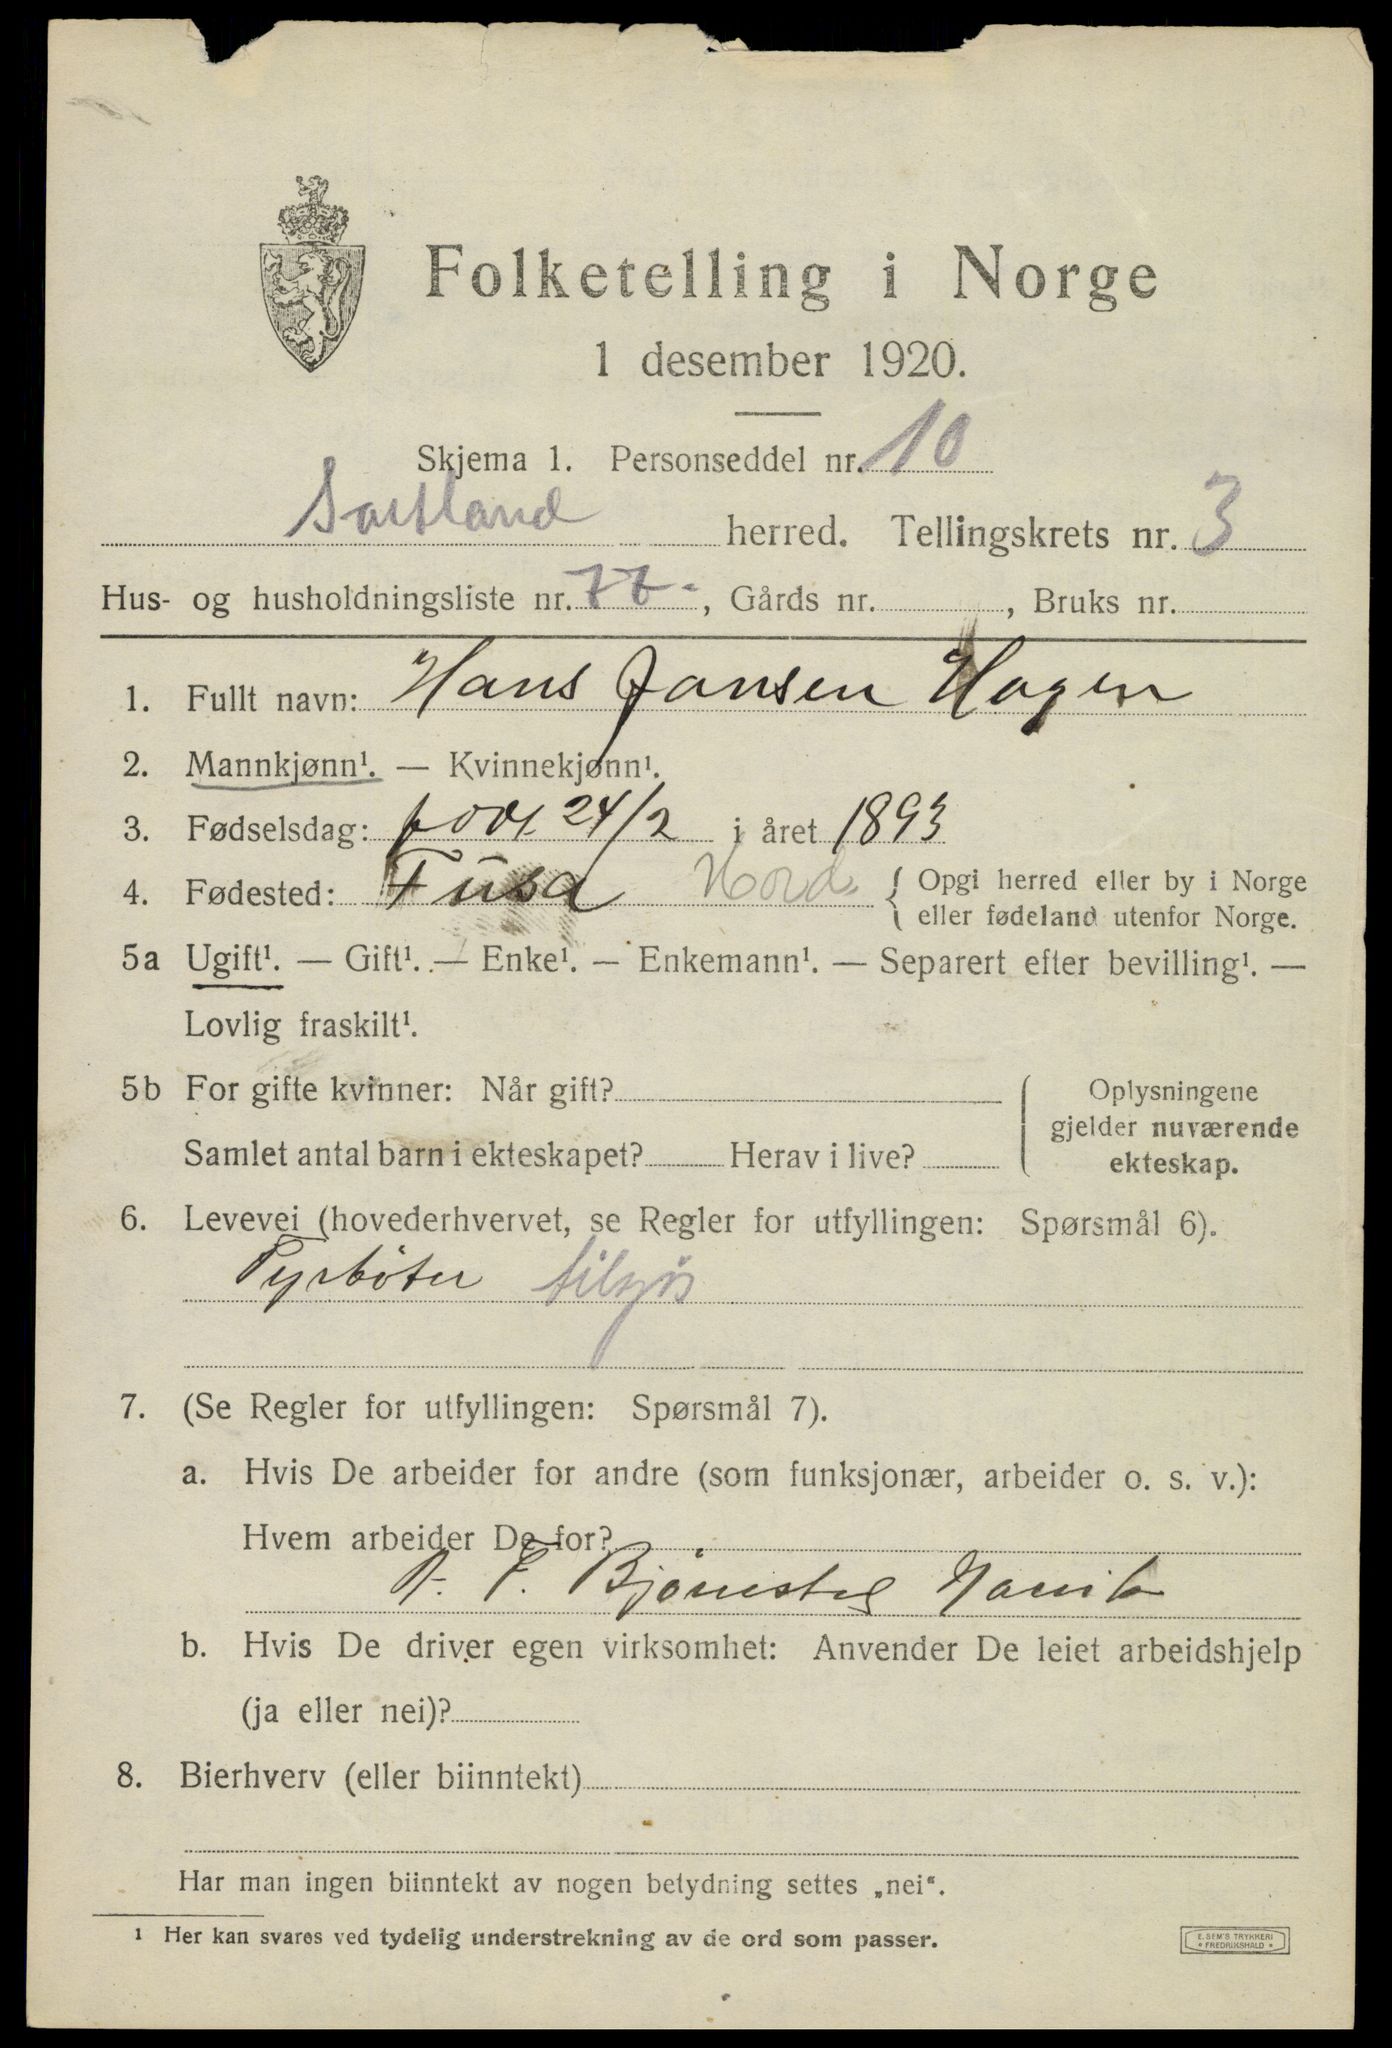 Folketelling i Norge
1 desember 1920.
Skjema 1. Personseddel nr. 10
Sortland herred. Tellingskrets nr. 3
Hus- og husholdningsliste nr. 77-, Gårds nr. , Bruks nr.
1. Fullt navn: Hans Jansen Hagen
2. Mannkjønn¹. — Kvinnekjønn¹.
3. Fødselsdag: født 24/2 i året 1893
4. Fødested: Fusa Hord { Opgi herred eller by i Norge
eller fødeland utenfor Norge.
5a Ugift¹. — Gift¹. — Enke¹. — Enkemann¹. — Separert efter bevilling¹. —
Lovlig fraskilt¹.
5b For gifte kvinner: Når gift? { Oplysningene
gjelder nuværende
Samlet antal barn i ekteskapet? Herav i live?
ekteskap.
6. Levevei (hovederhvervet, se Regler for utfyllingen: Spørsmål 6).
Fyrbøter
7. (Se Regler for utfyllingen: Spørsmål 7).
a. Hvis De arbeider for andre (som funksjonær, arbeider o. s. v.):
Hvem arbeider De for?
F. Narvik
b. Hvis De driver egen virksomhet: Anvender De leiet arbeidshjelp
(ja eller nei)?
8. Bierhverv (eller biinntekt)
Har man ingen biinntekt av nogen betydning settes „nei“.
1 Her kan svares ved tydelig understrekning av de ord som passer.
E. SEM'S TRYKKERI
• FREDRIKSHALD •